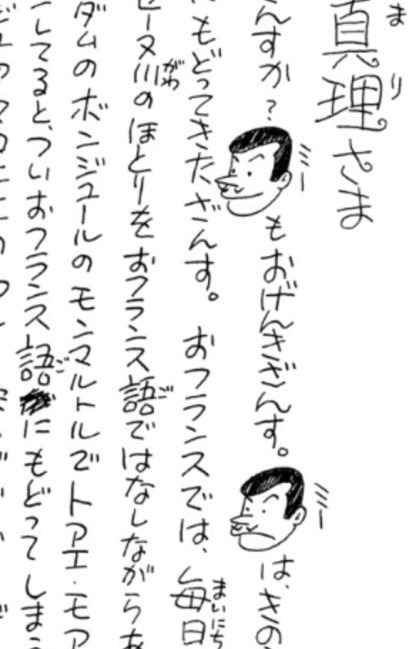 真理さま
んすか? もおげんきざんす。 は、きの
もどってきたざんす。おフランスでは、毎日
セーヌ川のほとりをおフランス語ではなしながらあ
ダムのボンジュールのモンマルトルでトアエ・モア
してると、ついおフランス語にもどってしまう